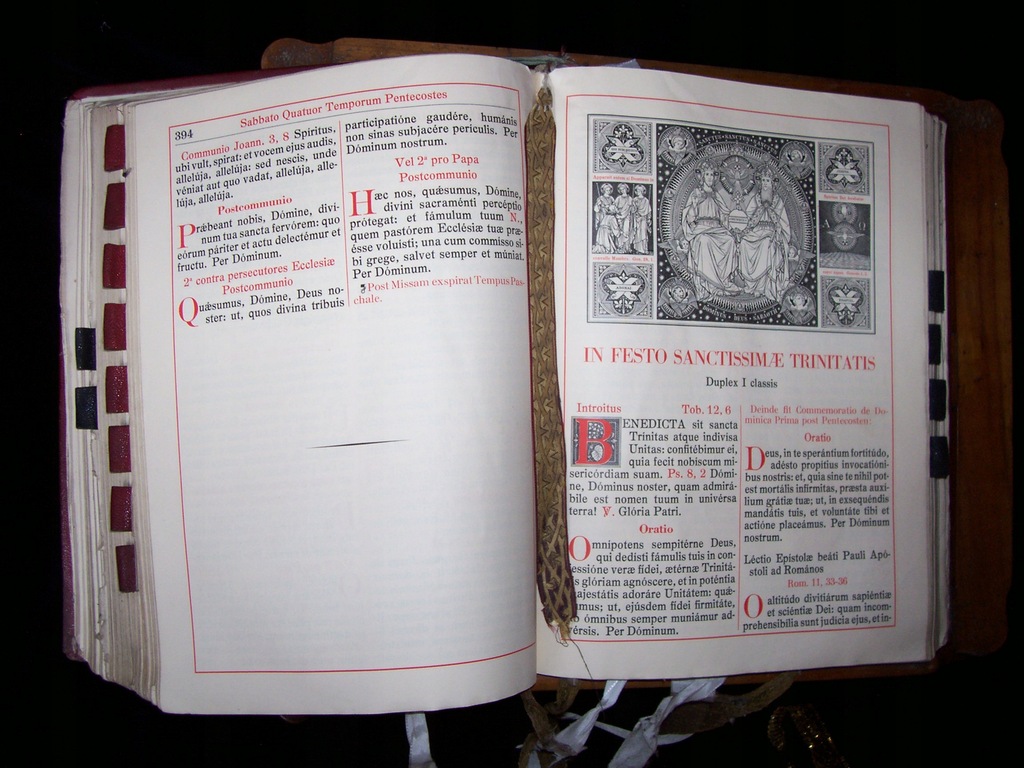 394
Sabbato Quatuor Temporum Pentecostes
Communio Joann. 3, 8 Spiritus,
ubi vult, spirat: et vocem ejus audis,
allelúja, allelúja: sed nescis, unde
véniat aut quo vadat, allelúja, alle-
lúja, allelúja.
Postcommunio
Præbeant nobis, Dómine, divi-
num tua sancta fervórem: quo
eórum páriter et actu delectémur et
fructu. Per Dóminum.
2ª contra persecutores Ecclesiæ
Postcommunio
Quǽsumus, Dómine, Deus no-
ster: ut, quos divína tríbuis
participatióne gaudére, humánis
non sinas subjacére perículis. Per
Dóminum nostrum.
Vel 2ª pro Papa
Postcommunio
Hæc nos, quǽsumus, Dómine,
divíni sacraménti percéptio
prótegat: et fámulum tuum N.,
quem pastórem Ecclésiæ tuæ præ-
ésse voluísti; una cum commísso si-
bi grege, salvet semper et múniat.
Per Dóminum.
Post Missam exspirat Tempus Pas-
chale.
IN FESTO SANCTISSIMÆ TRINITATIS
Duplex I classis
Introitus Tob. 12, 6
BENEDICTA sit sancta
Trínitas atque indivísa
Unitas: confitébimur ei,
quia fecit nobíscum mi-
sericórdiam suam. Ps. 8, 2 Dómi-
ne, Dóminus noster, quam admirá-
bile est nomen tuum in univérsa
terra! ℣. Glória Patri.
Oratio
Omnípotens sempitérne Deus,
qui dedísti fámulis tuis in con-
fessióne veræ fídei, ætérnæ Trinitá-
tis glóriam agnóscere, et in poténtia
majestátis adoráre Unitátem: quǽ-
sumus; ut, ejúsdem fídei firmitáte,
ab ómnibus semper muniámur ad-
vérsis. Per Dóminum.
Deinde fit Commemoratio de Do-
minica Prima post Pentecosten:
Oratio
Deus, in te sperántium fortitúdo,
adésto propítius invocatióni-
bus nostris: et, quia sine te nihil pot-
est mortális infírmitas, præsta auxí-
lium grátiæ tuæ; ut, in exsequéndis
mandátis tuis, et voluntáte tibi et
actióne placeámus. Per Dóminum
nostrum.
Léctio Epístolæ beáti Pauli Apó-
stoli ad Romános
Rom. 11, 33-36
O altitúdo divitiárum sapiéntiæ
et sciéntiæ Dei: quam incom-
prehensibília sunt judícia ejus, et in-